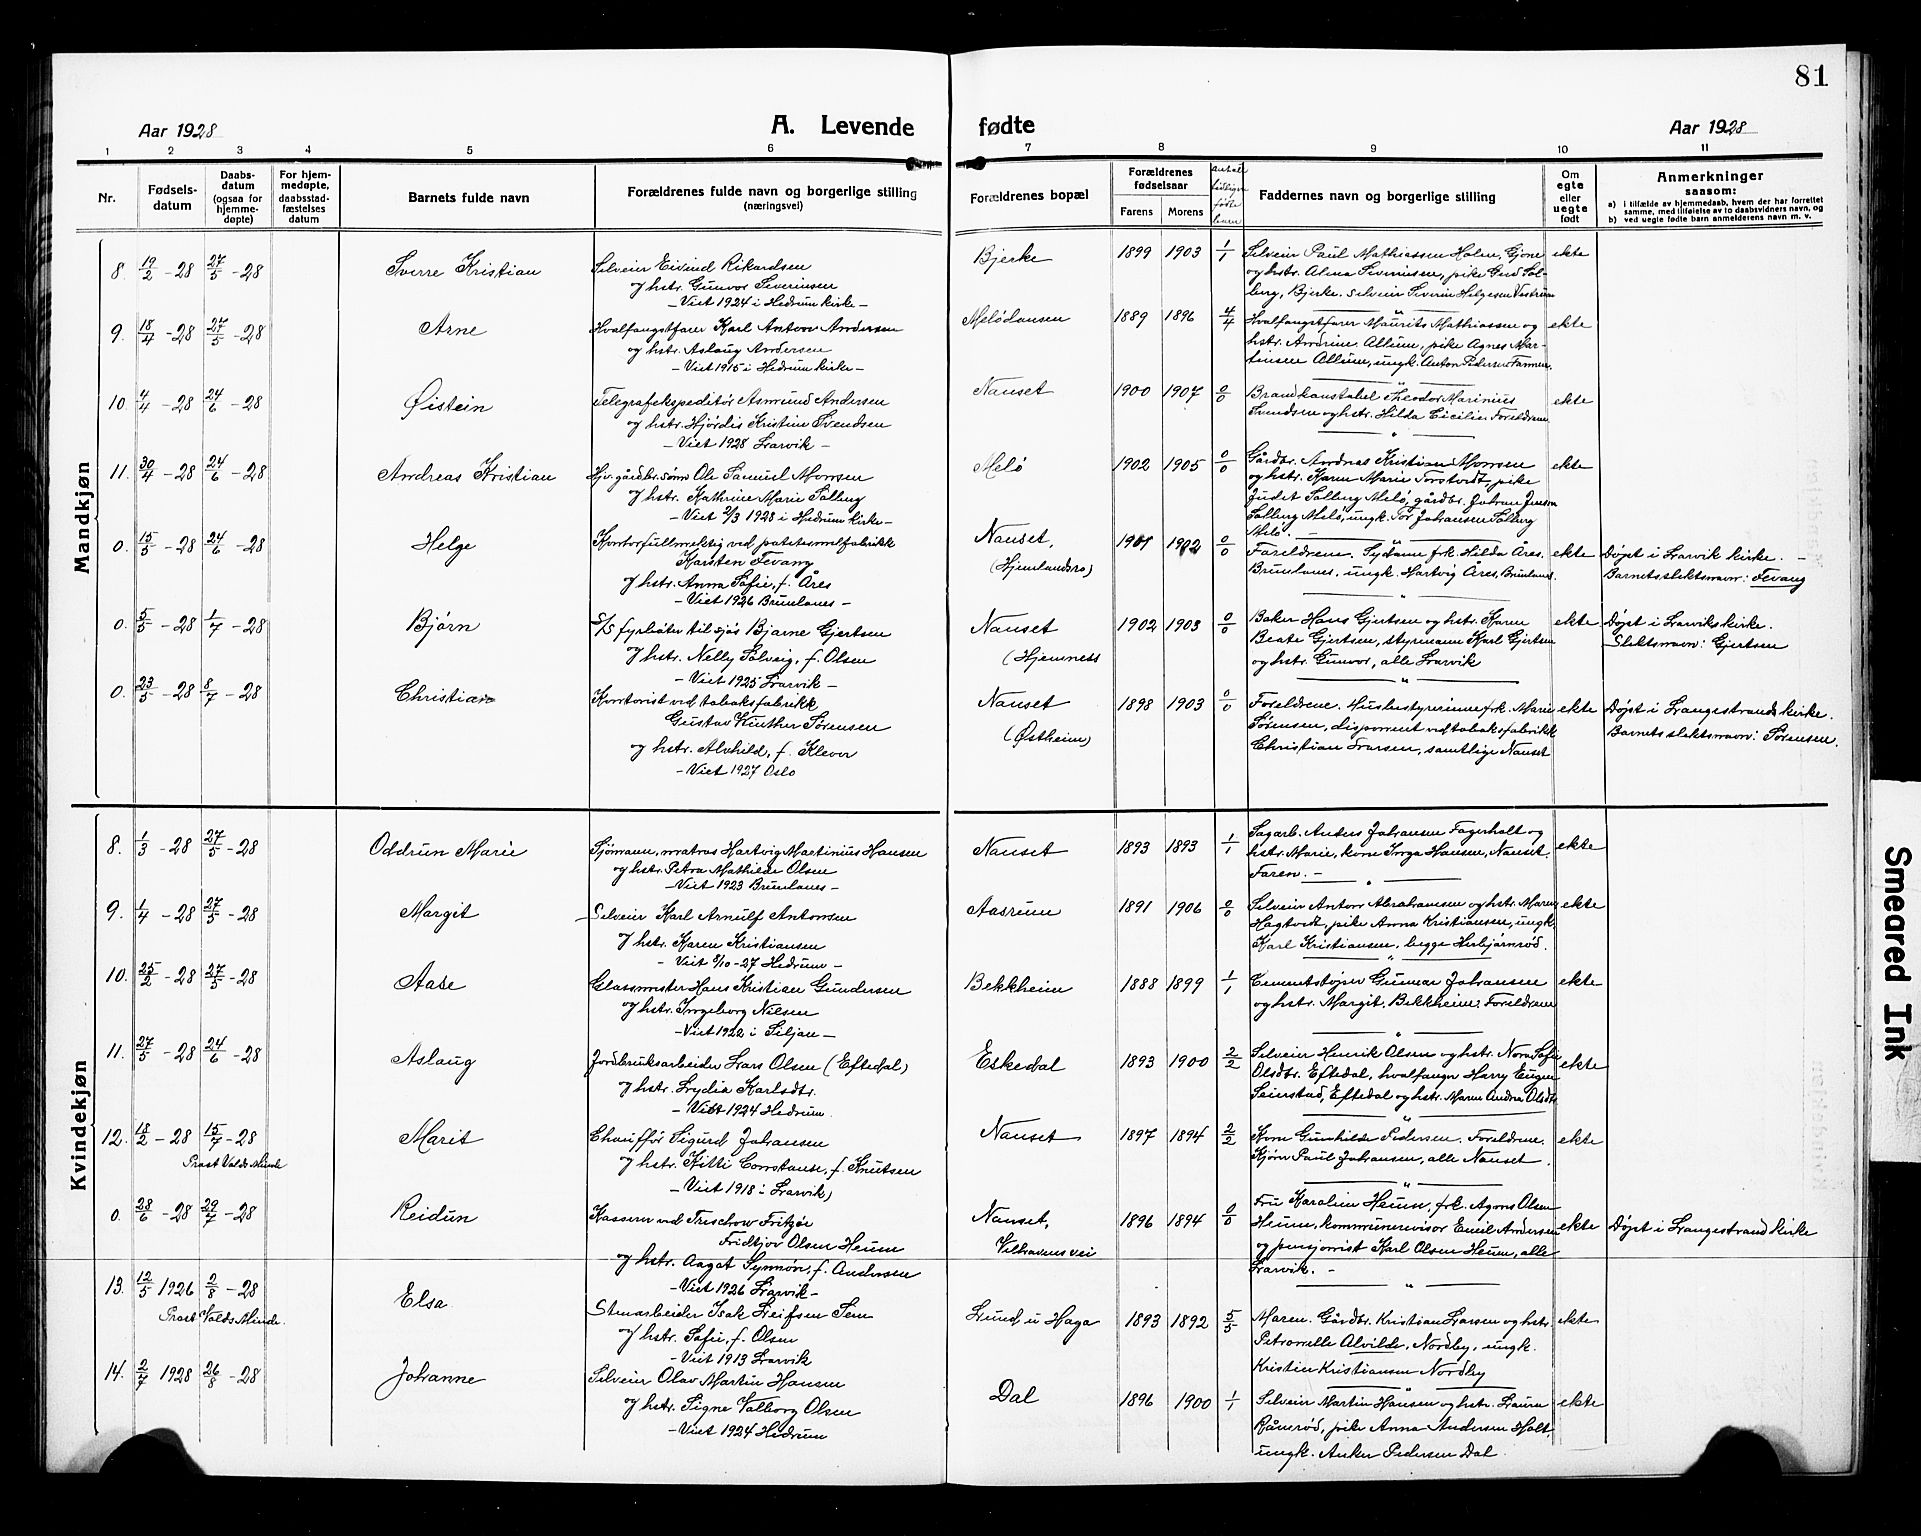 81
Aar 1928
A. Levende fødte
Aar 1928
1 2 3 4 5 6 7 8 9 10 11
Nr.
Fødsels-
datum
Daabs-
datum
(ogsaa for
hjemme-
døpte)
For hjem-
medøpte,
daabsstad-
fæstelses
datum
Barnets fulde navn
Forældrenes fulde navn og borgerlige stilling
(næringsvei)
Forældrenes bopæl
Forældrenes
fødselsaar
Farens Morens
Faddernes navn og borgerlige stilling
Om
egte
eller
uegte
født
Anmerkninger
saasom:
a) i tilfælde av hjemmedaab, hvem der har forrettet
samme, med tilføielse av to daabsvidners navn, og
b) ved uegte fødte barn anmelderens navn m. v.
Mandkjøn
8. 19/2 - 28 27/5 - 28 Sverre Kristian
Selveier Eivind Rikardsen
og hstr. Gunvor Severinsen
- Viet 1924 i Hedrum kirke -
Bjerke 1899 1903 1/1
Selveier Paul Mathiassen Holm, Gjone
og hstr. Alma Severinsen, pike Gerd Sol-
berg, Bjerke. Selveier Severin Helgesen Vestrum
ekte
9. 18/4 - 28 27/5 - 28 Arne
Hvalfangstfarer Karl Anton Andersen
og hstr. Aslaug Andersen
- Viet 1915 i Hedrum kirke -
Melødansen 1889 1896 4/4
Hvalfangstfarer Maurits Mathiassen og
hstr. Andrine Allum, pike Agnes Mar-
tinsen Allum, ungk. Anton Pedersen Fammen.
ekte
10. 4/4 - 28 24/6 - 28 Øistein
Telegrafekspeditør Asmund Andersen
og hstr. Hjørdis Kristine Svendsen
- Viet 1928 Larvik -
Nanset 1900 1907 0/0
Brandkonstabel Theodor Marinius
Svendsen og hstr. Hilda Cicilie. Foreldrene
ekte
11. 30/4 - 28 24/6 - 28 Andreas Kristian
Hjv. gårdbr. sønn Ole Samuel Momsen
og hstr. Kathrine Marie Solberg
- Viet 2/3 1928 i Hedrum kirke -
Melø 1902 1905 0/0
Gårdbr. Andreas Kristian Momsen
og hstr. Karen Marie Torstvedt, pike
Judet Solberg Melø, gårdbr. Johan Jensen
Solberg Melø, ungk. Tor Johansen Solberg
Melø.
ekte
0. 15/5 - 28 24/6 - 28 Helge
Kontorfullmektig ved patetermelfabrikk
Karsten Fevang
og hstr. Anna Sofie, f. Åres
- Viet 1926 Brunlanes -
Nanset,
(Hjemlandsro)
1901 1902 0/0
Foreldrene. Sydame frk. Hilda Åres.
Brunlanes, ungk. Hartvig Åres, Brunlanes.
ekte
Døpt i Larvik kirke. -
Barnets slektsnavn: Fevang
0. 5/5 - 28 1/7 - 28 Bjørn
S/S fyrbøter til sjøs Bjarne Gjertsen
og hstr. Nelly Solveig, f. Olsen
- Viet 1925 Larvik -
Nanset
(Hjemness
1902 1903 0/0
Baker Hans Gjertsen og hstr. Karen
Beate Gjertsen, styrmann Karl Gjertsen
og hstr. Gunvor, alle Larvik
ekte
Døpt i Larviks kirke.
Slektsnavn: Gjertsen
0. 23/5 - 28 8/7 - 28 Christian
Kontorist ved tobaksfabrikk
Gustav Günther Sørensen
og hstr. Alvhild, f. Klever
- Viet 1927 Oslo
Nanset
(Østheim)
1898 1903 0/0
Foreldrene. Husbestyrerinne frk. Marie
Sørensen, disponent ved tobaksfabrikk
Christian Larsen, samtlige Nanset
ekte
Døpt i Langestrands kirke.
Barnets slektsnavn: Sørensen.
Kvindekjøn
8. 1/3 - 28 27/5 - 28 Oddrun Marie
Sjømann, matros Hartvig Martinius Hansen
og hstr. Petra Mathilde Olsen
- Viet 1923 Brunlanes -
Nanset 1893 1893 1/1
Sagarb. Anders Johansen Fagerholt og
hstr. Marie, kone Inga Hansen, Nanset.
Faren. -
ekte
9. 1/4 - 28 27/5 - 28 Margit
Selveier Karl Arnulf Antonsen
og hstr. Karen Kristiansen
- Viet 8/10 - 27 Hedrum -
Aasrum 1891 1906 0/0
Selveier Anton Abrahamsen og hstr. Maren
Hagtvedt, pike Anna Kristiansen, ungk.
Karl Kristiansen, begge Herbjørnrød.
ekte
10. 25/2 - 28 27/5 - 28 Aase
Glassmester Hans Kristian Gundersen
og hstr. Ingeborg Nilsen
- Viet 1922 i Siljan -
Bekkheim 1888 1899 1/1
Cementstøper Gunnar Johansen
og hstr. Margit. Bekkheim. Foreldrene
ekte
11. 27/5 - 28 24/6 - 28 Aslaug
Jordbruksarbeider Lars Olsen (Eftedal)
og hstr. Lydia Karlsdtr.
- Viet 1924 Hedrum.
Eskedal 1893 1900 2/2
Selveier Henrik Olsen og hstr. Nora Sofie
Olsdtr. Eftedal, hvalfanger Harry Eugen
Seierstad, Eftedal og hstr. Maren Andrea Olsdtr.
ekte
12. 18/2 - 28 15/7 - 28 Marit
Prost Valds Minde
Chauffør Sigurd Johansen
og hstr. Kitti Constanse, f. Knutsen
- Viet 1918 i Larvik)
Nanset 1897 1894 2/2
Kone Gunhilde Pedersen. Foreldrene.
Kjørn Paul Johansen, alle Nanset.
ekte
0. 28/6 - 28 29/7 - 28 Reidun
Kasserer ved Treschow Fritzøe
Fridtjov Olsen Heum
og hstr. Aagot Synnøve, f. Andersen
- Viet 1926 Larvik -
Nanset,
1896 1894 0/0
Fru Karoline Heum, frk. Agnes Olsen
Heum, kommunerevisor Emil Andersen
og pensjonist Karl Olsen Heum, alle
Larvik. -
ekte
Døpt i Langestrand kirke
13. 12/5 1926 2/8 - 28 Elsa
Prost Valds Minde.
Stenarbeider Isak Leifsen Sem
og hstr. Sofie, f. Olsen
- Viet 1913 Larvik
Lund u Haga 1893 1892 5/5
Maren. Gårdbr. Kristian Larsen og hstr.
Petronelle Alvilde, Nordby, ungk.
Kristian Kristiansen Nordby
ekte
14. 2/7 1928 26/8 - 28 Johanne
Selveier Olav Martin Hansen
og hstr. Signe Valborg Olsen
- Viet 1924 Hedrum
Dal 1896 1900 1/1
Selveier Martin Hansen og hstr. Laura
Råmsrød, pike Anna Andersen Holt,
ungk. Anker Pedersen Dal.
ekte
Smeared Ink